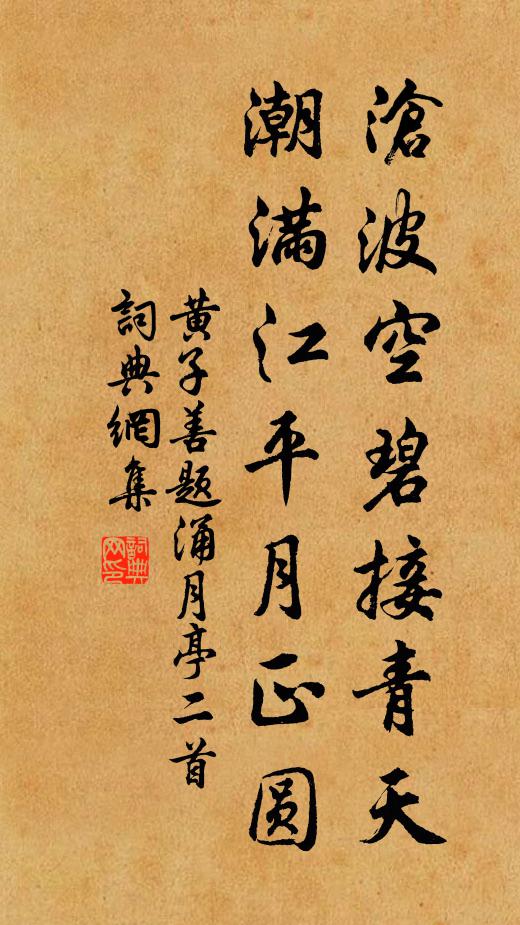 滄波空碧接青天
潮滿江平月正圓
黃子善題涌月亭二首
詞典網集
詞典网印